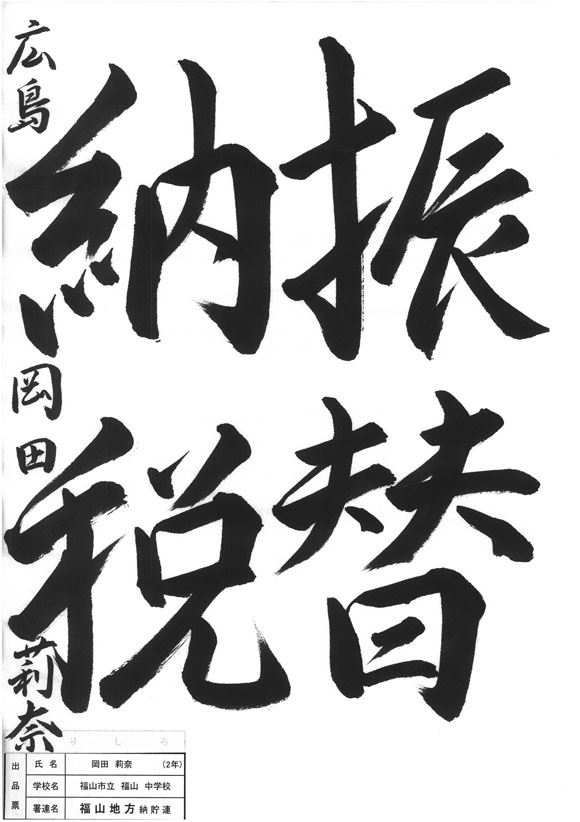 振替
納税
広島 岡田 莉奈
りしろ
出品票
氏名 岡田 莉奈 (2年)
学校名 福山市立 福山 中学校
署連名 福山地方納貯連